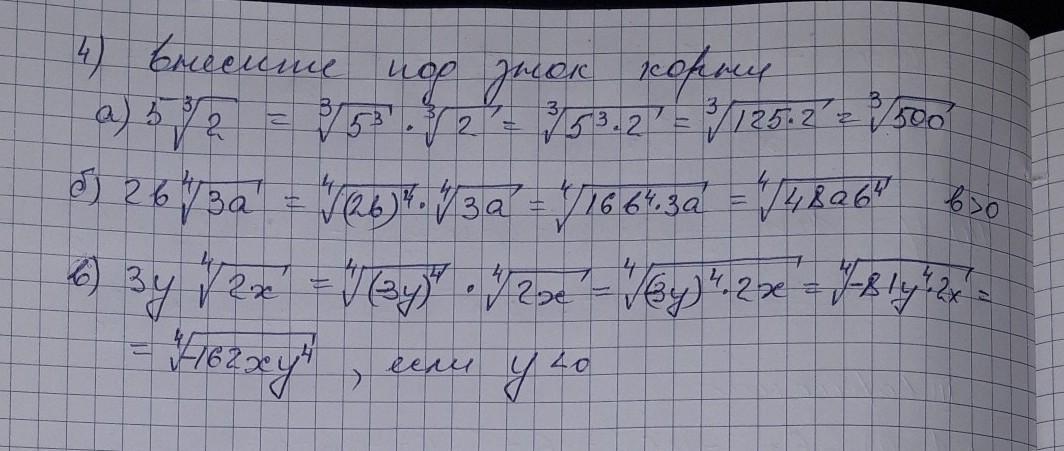 4) Внесите под знак корня
а) 5∛2 = ∛5³ · ∛2 = ∛(5³·2) = ∛(125·2) = ∛500
б) 2b∜(3a) = ∜((2b)⁴) · ∜(3a) = ∜(16b⁴·3a) = ∜(48ab⁴) b>0
в) 3y ∜(2x) = ∜((3y)⁴) · ∜(2x) = ∜((3y)⁴·2x) = ∜(-81y⁴·2x) =
= ∜(-162xy⁴) , если y<0